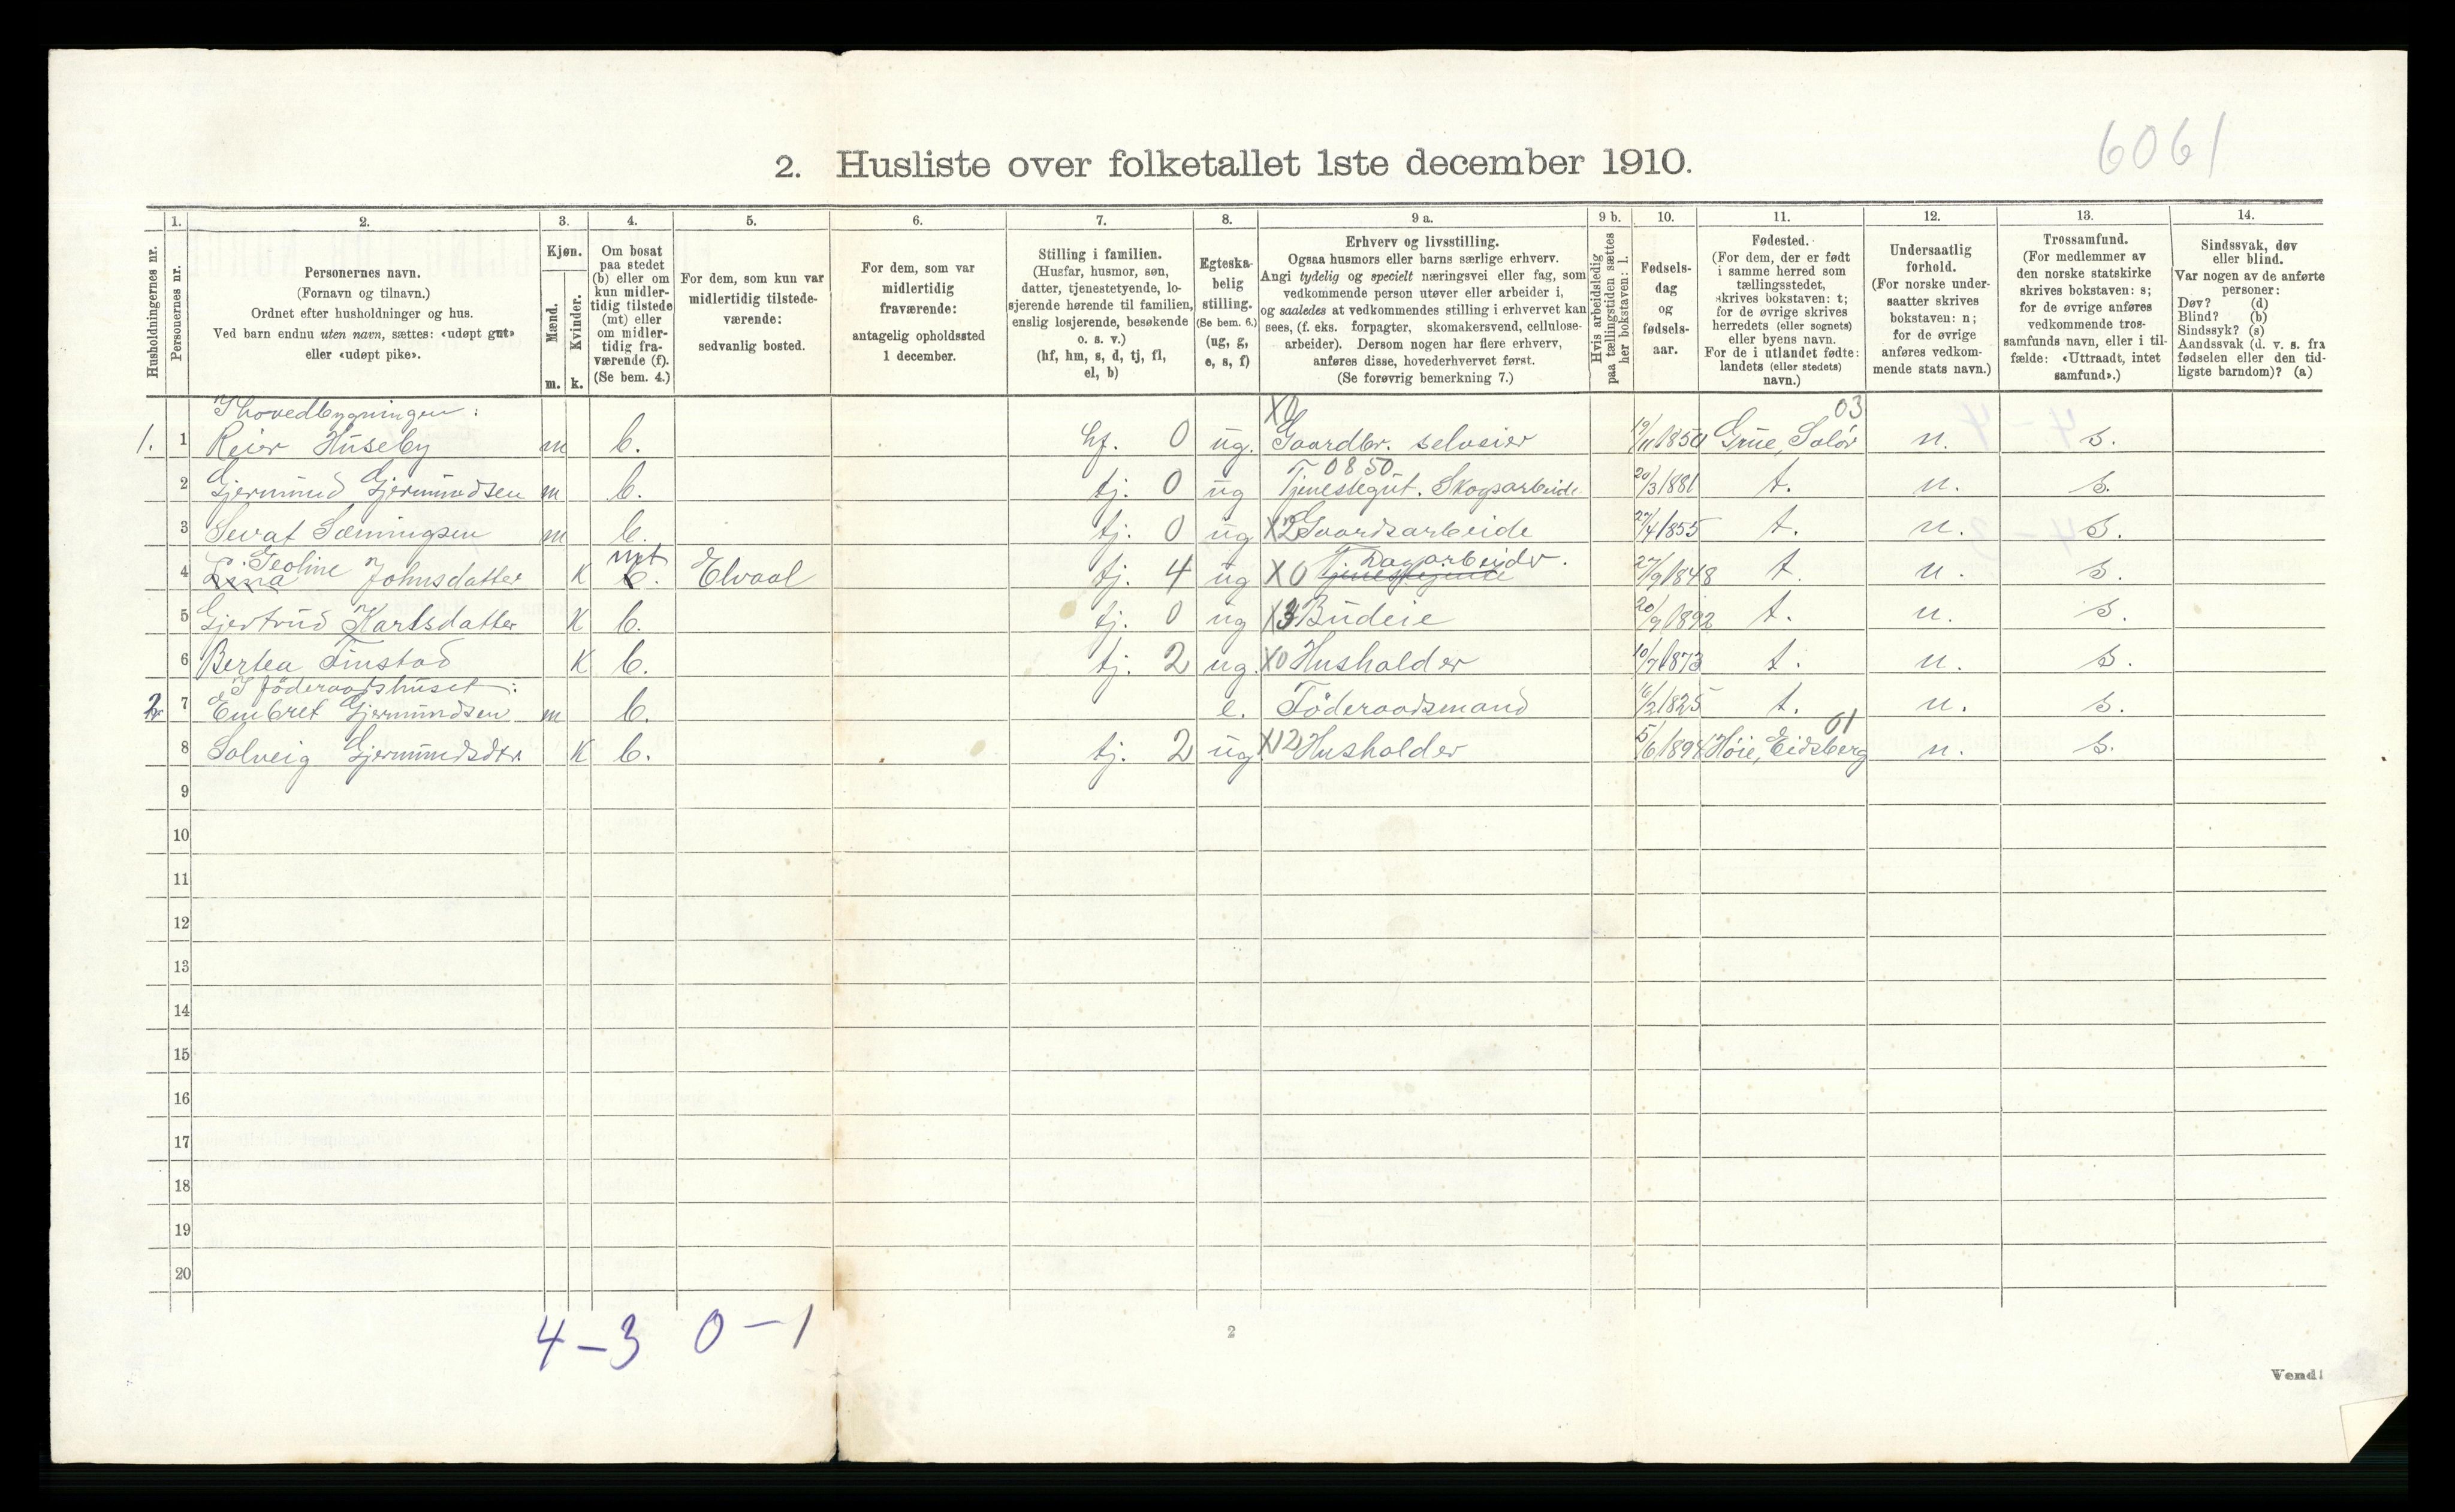 6061
2. Husliste over folketallet 1ste december 1910.
1. 2. 3. 4. 5. 6. 7. 8. 9 a. 9 b. 10. 11. 12. 13. 14.
Husholdningernes nr.
Personernes nr.
Personernes navn.
(Fornavn og tilnavn.)
Ordnet efter husholdninger og hus.
Ved barn endnu uten navn, sættes: «udøpt gut»
eller «udøpt pike».
Kjøn.
Mænd.
Kvinder.
m. k.
Om bosat
paa stedet
(b) eller om
kun midler-
tidig tilstede
(mt) eller
om midler-
tidig fra-
værende (f).
(Se bem. 4.)
For dem, som kun var
midlertidig tilstede-
værende:
sedvanlig bosted.
For dem, som var
midlertidig
fraværende:
antagelig opholdssted
1 december.
Stilling i familien.
(Husfar, husmor, søn,
datter, tjenestetyende, lo-
sjerende hørende til familien,
enslig losjerende, besøkende
o. s. v.)
(hf, hm, s, d, tj, fl,
el, b)
Egteska-
belig
stilling.
(Se bem. 6.)
(ug, g,
e, s, f)
Erhverv og livsstilling.
Ogsaa husmors eller barns særlige erhverv.
Angi tydelig og specielt næringsvei eller fag, som
vedkommende person utøver eller arbeider i,
og saaledes at vedkommendes stilling i erhvervet kan
sees, (f. eks. forpagter, skomakersvend, cellulose-
arbeider). Dersom nogen har flere erhverv,
anføres disse, hovederhvervet først.
(Se forøvrig bemerkning 7.)
Hvis arbeidsledig
paa tællingstiden sættes
her bokstaven: l.
Fødsels-
dag
og
fødsels-
aar.
Fødested.
(For dem, der er født
i samme herred som
tællingsstedet,
skrives bokstaven: t;
for de øvrige skrives
herredets (eller sognets)
eller byens navn.
For de i utlandet fødte:
landets (eller stedets)
navn.)
Undersaatlig
forhold.
(For norske under-
saatter skrives
bokstaven: n;
for de øvrige
anføres vedkom-
mende stats navn.)
Trossamfund.
(For medlemmer av
den norske statskirke
skrives bokstaven: s;
for de øvrige anføres
vedkommende tros-
samfunds navn, eller i til-
fælde: «Uttraadt, intet
samfund».)
Sindssvak, døv
eller blind.
Var nogen av de anførte
personer:
Døv? (d)
Blind? (b)
Sindssyk? (s)
Aandssvak (d. v. s. fra
fødselen eller den tid-
ligste barndom)? (a)
I hovedbygningen: X0 03
1. 1 Reier Huseby m b. hf. 0 ug. Gaardbr. selveier 19/11 1850 Grue, Solør n. s.
0850
2 Gjermund Gjermundsen m b. tj. 0 ug Tjenestegut. Skogsarbeide 20/3 1881 t. n. s.
3 Sevat Sæmingsen m b. tj. 0 ug X2 Gaardsarbeide 27/4 1855 t. n. s.
Teoline mt Dagarbeider.
4 Lina Johnsdatter K b. Elvaal tj. 4 ug X0 Tjenestejente 27/9 1848 t. n. s.
5 Gjertrud Karlsdatter K b. tj. 0 ug X3 Budeie 20/9 1892 t. n. s.
6 Bertea Finstad K b. tj. 2 ug. X0 Husholder 10/7 1873 t. n. s.
I föderaadshuset:
2 7 Embret Gjermundsen m b. e. Föderaadsmand 16/2 1825 t. n. s.
01
8 Solveig Gjermundsdtr K b. tj. 2 ug X12 Husholder 5/6 1894 Höie, Eidsberg n. s.
9
10
11
12
13
14
15
16
17
18
19
20
4-3 0-1
2
Vend!